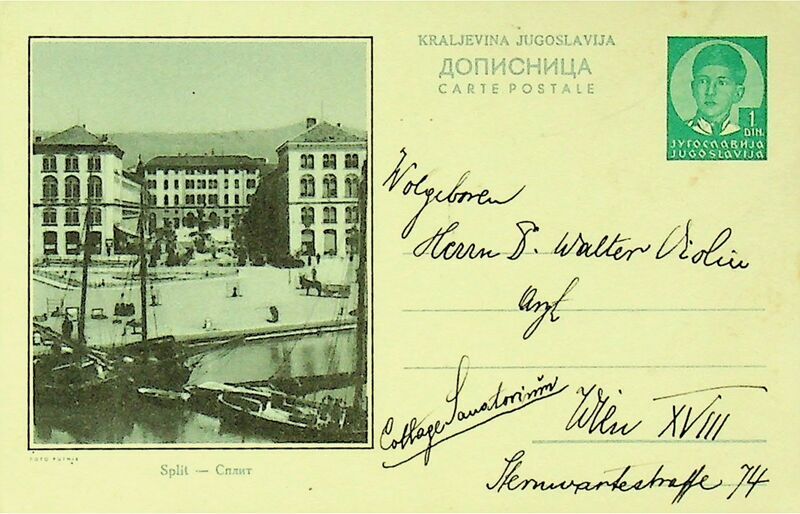 KRALJEVINA JUGOSLAVIJA
ДОПИСНИЦА
CARTE POSTALE
1
DIN.
ЈУГОСЛАВИЈА
JUGOSLAVIJA
Wolgeboren
Herrn D. Walter Violin
Arzt
Cottage Sanatorium
Wien XVIII
Sternwartestraſſe 74
FOTO PUTNIK
Split — Сплит